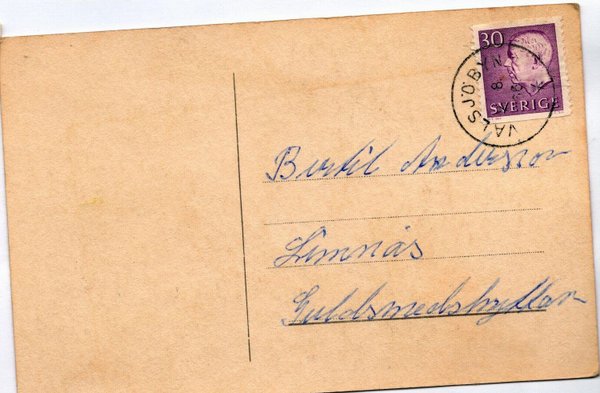 30
SVERIGE
VALSJÖBYN
8.
Bertil Andersson
Limnäs
Guldsmedshyttan